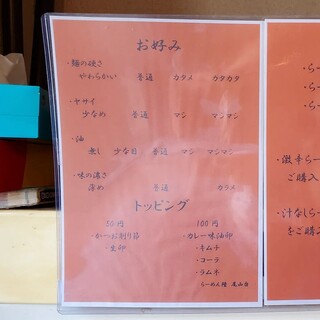 お好み
・麺の硬さ
やわらかい 普通 カタメ カタカタ
・ヤサイ
少なめ 普通 マシ マシマシ
・油
無し 少な目 普通 マシ マシマシ
・味の濃さ
薄め 普通 カラメ
トッピング
50円 100円
・かつお削り節 ・カレー味油卵
・生卵 ・キムチ
・コーラ
・ラムネ
らーめん陸 尾山台
らー
・らー
・らー
・激辛らー
ご購入
・汁なしらー
をご購入